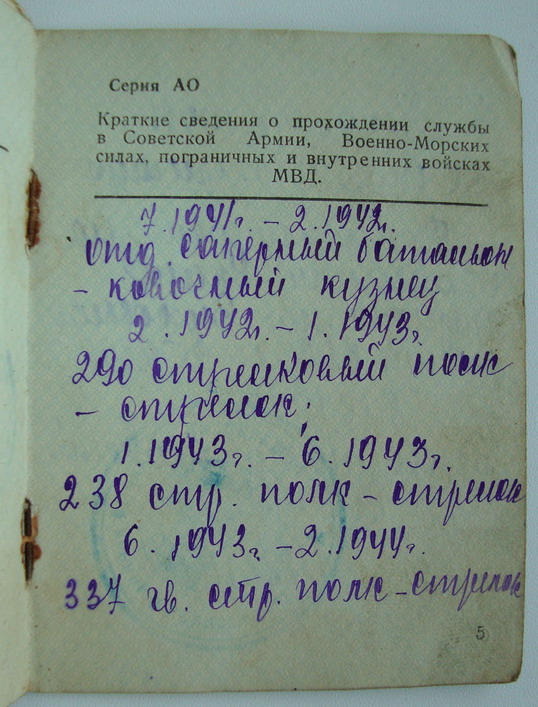 Серия АО
Краткие сведения о прохождении службы
в Советской Армии, Военно-Морских
силах, пограничных и внутренних войсках
МВД.
7.1941г. – 2.1942г.
отд. саперный батальон
– ковочный кузнец
2.1942г. – 1.1943г.
290 стрелковый полк
– стрелок;
1.1943г. – 6.1943г.
238 стр. полк – стрелок
6.1943г. – 2.1944г.
337 гв. стр. полк – стрелок
5